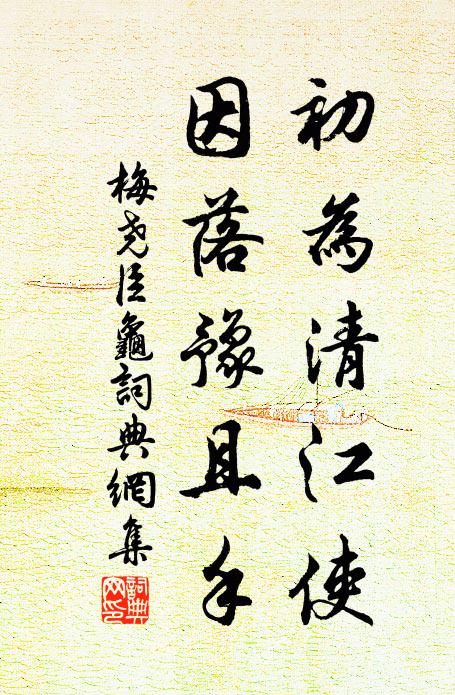 初為清江使
因落豫且手
梅堯臣龜詞典網集
詞典網印